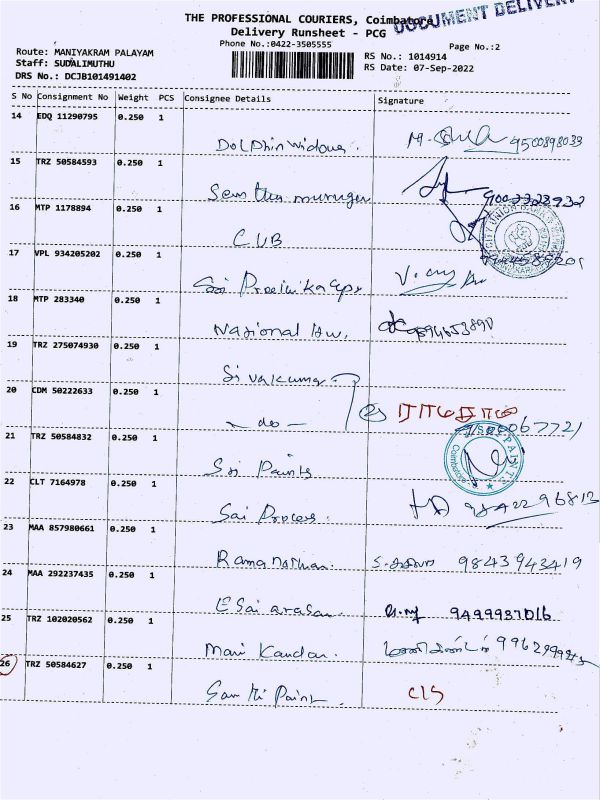 THE PROFESSIONAL COURIERS, Coimbatore
DOCUMENT DELIVERY
Delivery Runsheet - PCG
Phone No.:0422-3505555
Page No.:2
Route: MANIYAKRAM PALAYAM
RS No.: 1014914
Staff: SUDALIMUTHU
RS Date: 07-Sep-2022
DRS No.: DCJB101491402
S No Consignment No Weight PCS Consignee Details Signature
14 EDQ 11290795 0.250 1
Dolphin widows. 9500898033
15 TRZ 50584593 0.250 1
Senthu murugan
16 MTP 1178894 0.250 1
CUB
CITY UNION BANK
17 VPL 934205202 0.250 1
Sai
18 MTP 283340 0.250 1
National Hw.
19 TRZ 275074930 0.250 1
Sivakumar
20 CDM 50222633 0.250 1
- do -
21 TRZ 50584832 0.250 1
Sri Paints
SRI PAINTS
Coimbatore
22 CLT 7164978 0.250 1
Sai Process.
23 MAA 857980661 0.250 1
Ramanathan. 9843943419
24 MAA 292237435 0.250 1
E Sai arasan. 9499937016
25 TRZ 102020562 0.250 1
Mani Kandan.
26 TRZ 50584627 0.250 1
Paint. C/S